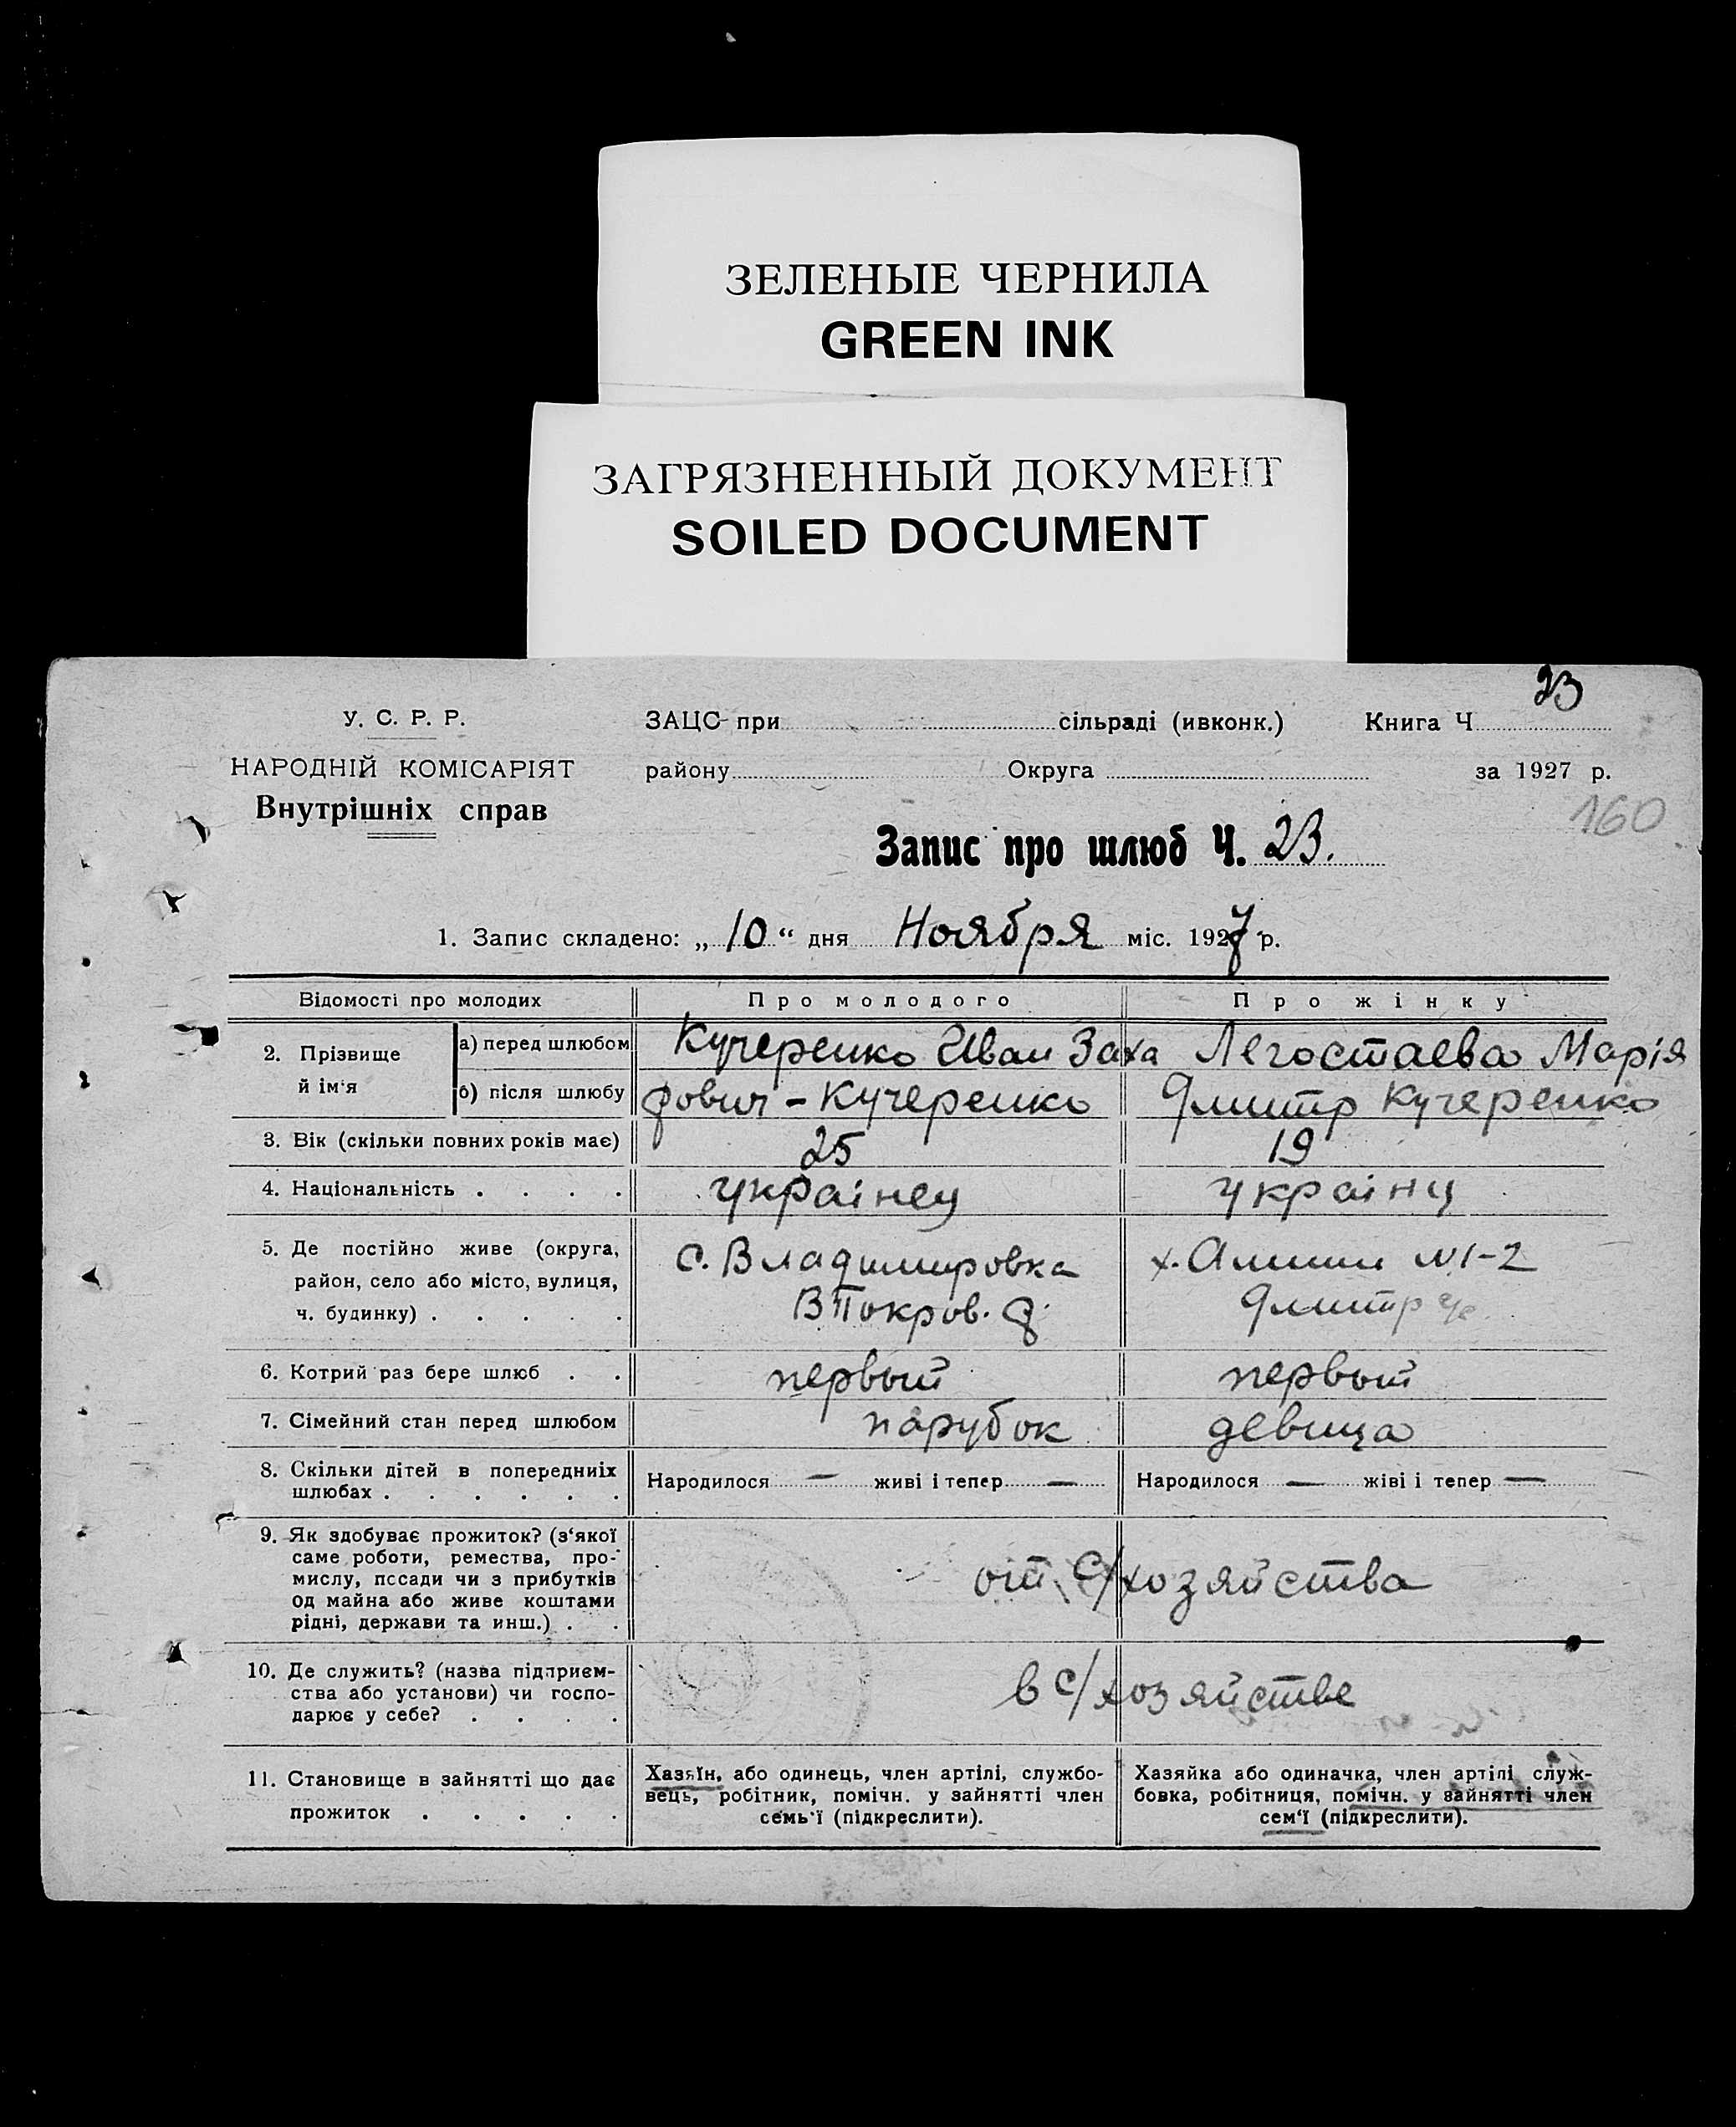 ЗЕЛЕНЫЕ ЧЕРНИЛА
GREEN INK
ЗАГРЯЗНЕННЫЙ ДОКУМЕНТ
SOILED DOCUMENT
23
У. С. Р. Р.
ЗАЦС при сільраді (ивконк.) Книга Ч
НАРОДНІЙ КОМІСАРІЯТ
району Округа за 1927 р.
Внутрішніх справ
160
Запис про шлюб Ч. 23.
1. Запис складено: „10“ дня Ноября міс. 1927 р.
Відомості про молодих Про молодого Про жінку
2. Прізвище й ім'я
а) перед шлюбом Кучеренко Иван Заха Легостаева Марія
б) після шлюбу рович - Кучеренко Дмитр Кучеренко
3. Вік (скільки повних років має) 25 19
4. Національність . . . . українец українц
5. Де постійно живе (округа, с. Владимировка х. N1-2
район, село або місто, вулиця,
ч. будинку) . . . . . ВПокров. р. Дмитр
6. Котрий раз бере шлюб . . первый первый
7. Сімейний стан перед шлюбом парубок девица
8. Скільки дітей в попередниіх Народилося — живі і тепер — Народилося — жіві і тепер —
шлюбах . . . . . .
9. Як здобуває прожиток? (з'якої
саме роботи, ремества, про-
мислу, пссади чи з прибутків от с/хозяйства
од майна або живе коштами
рідні, держави та инш.) . .
10. Де служить? (назва підприєм-
ства або установи) чи госпо- в с/хозяйстве
дарює у себе? . . . .
11. Становище в зайнятті що дає
прожиток . . . . .
Хазяїн, або одинець, член артілі, службо-
вець, робітник, помічн. у зайнятті член
семь'ї (підкреслити).
Хазяйка або одиначка, член артілі служ-
бовка, робітниця, помічн. у зайнятті член
сем'ї (підкреслити).